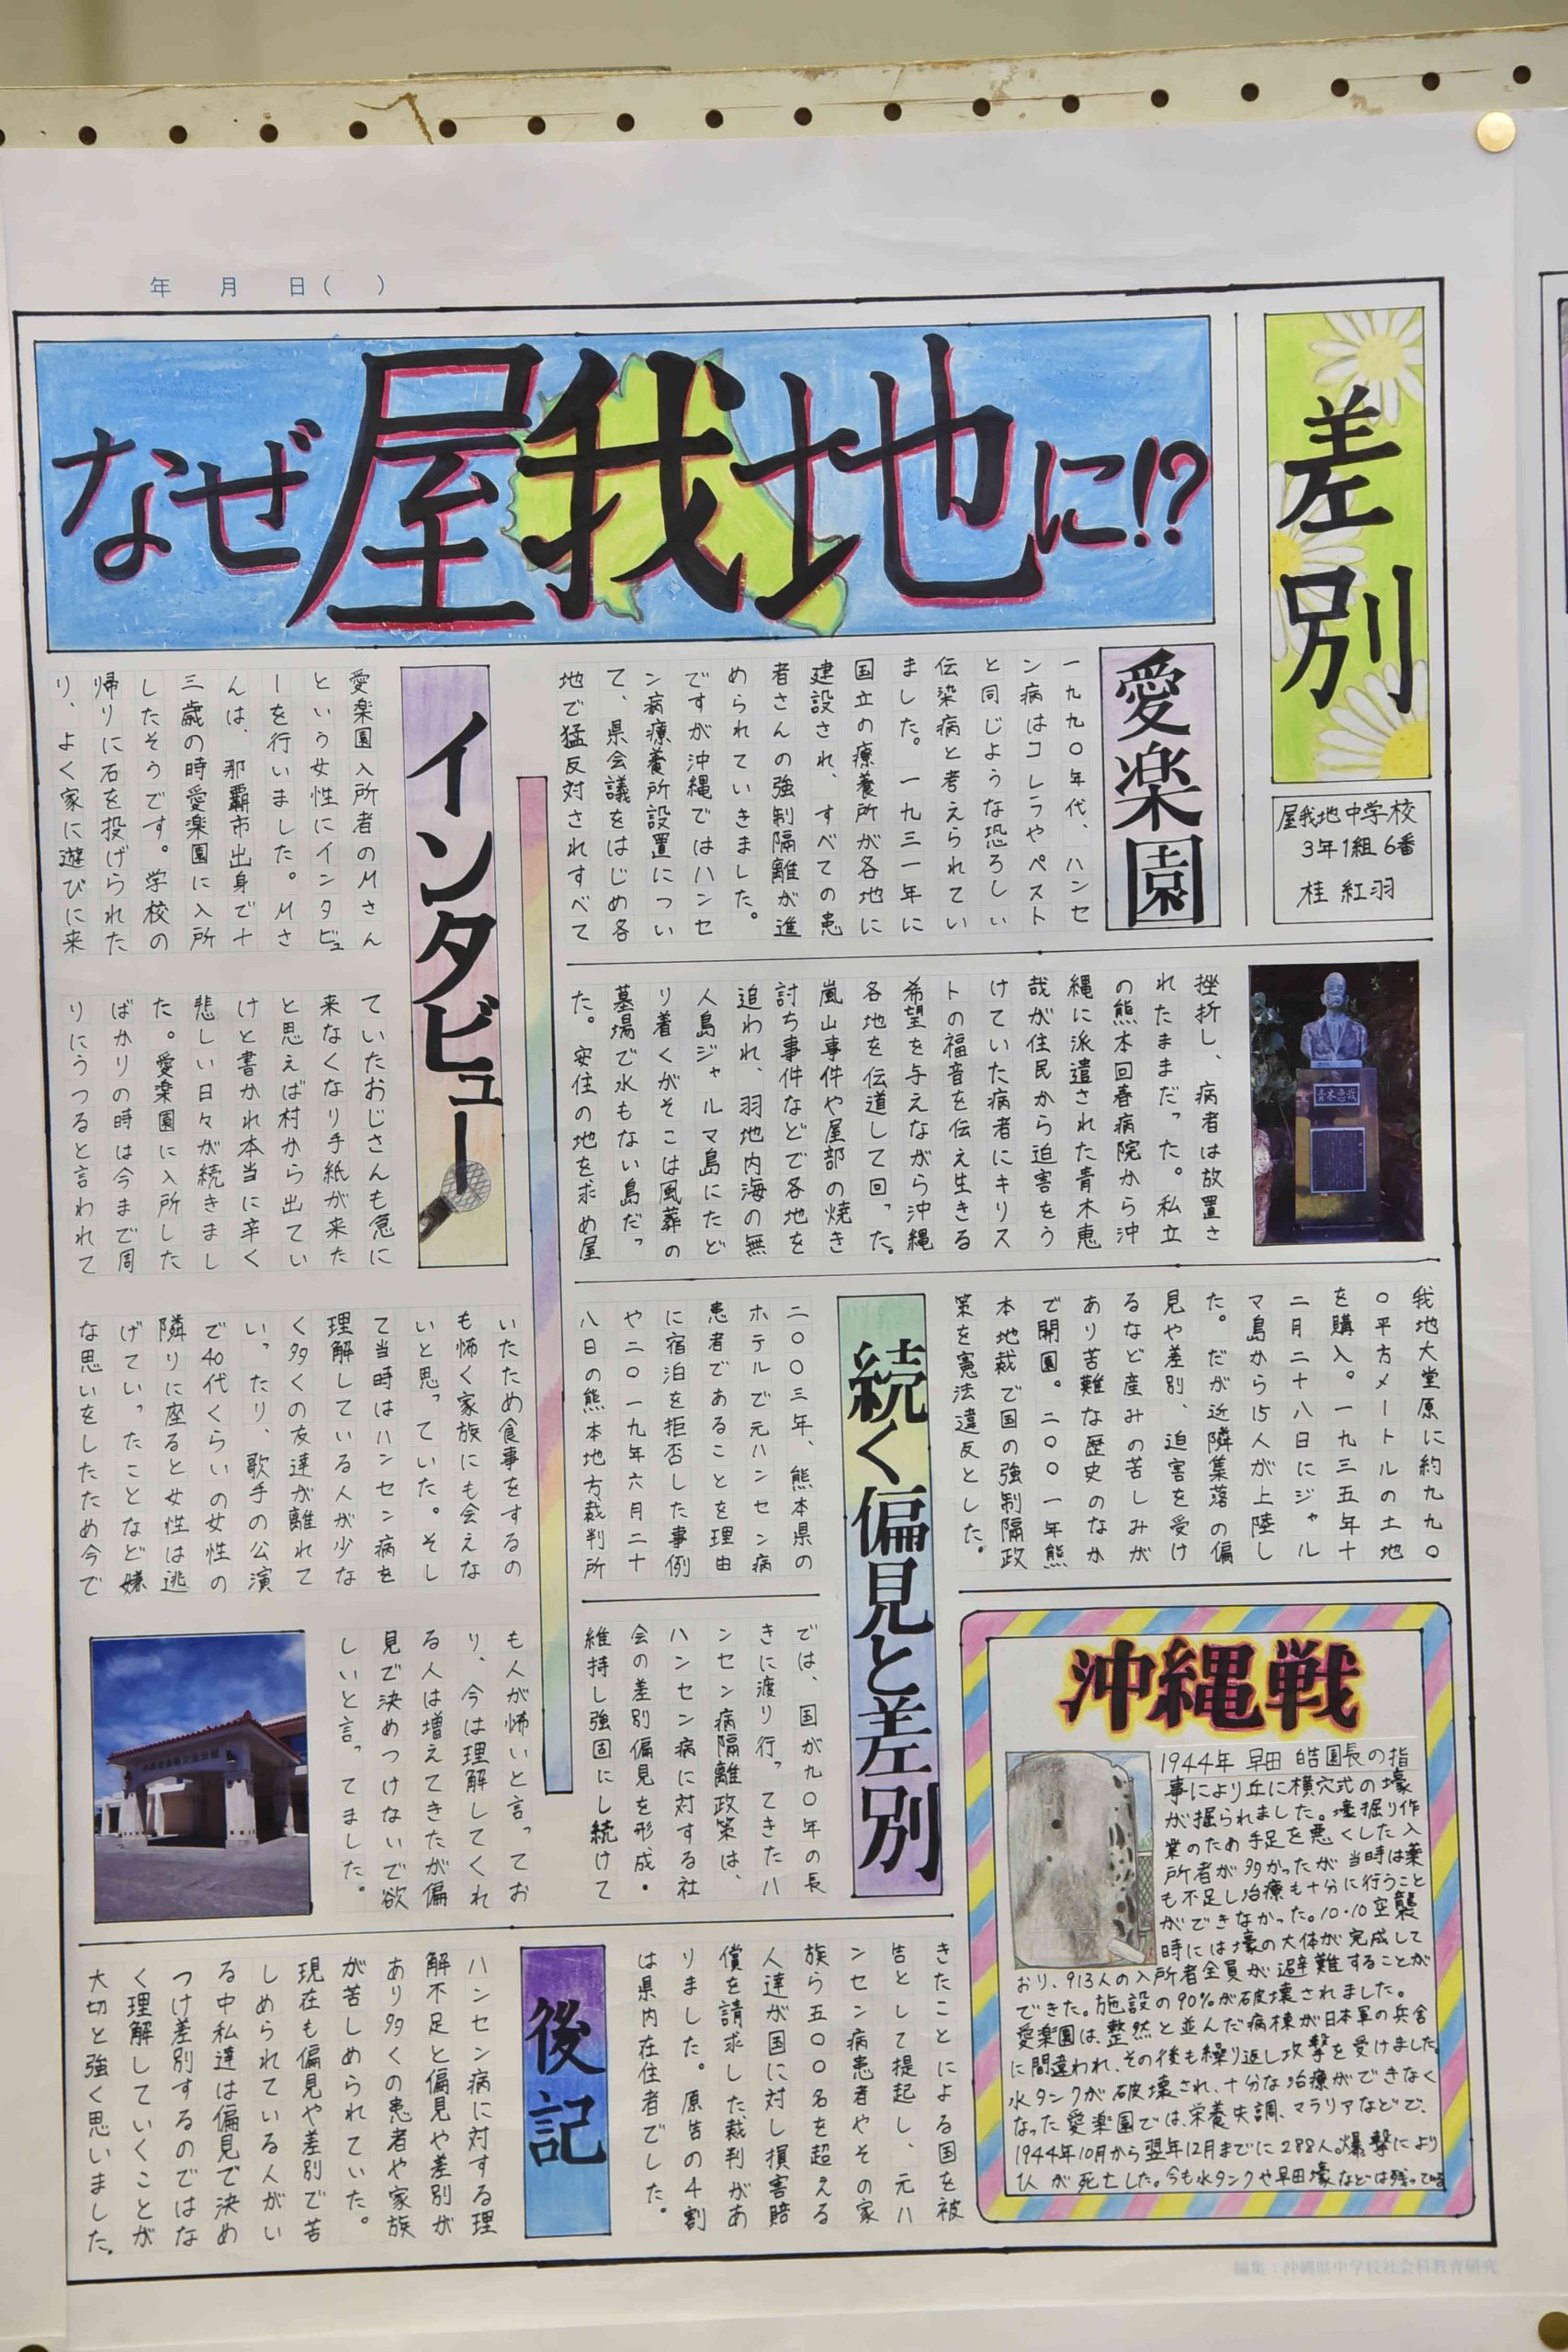 年 月 日( )
差別
屋我地中学校
3年1組6番
桂 紅羽
なぜ屋我地に!?
愛楽園
一九九〇年代、ハンセ
ン病はコレラやペスト
と同じような恐ろしい
伝染病と考えられてい
ました。一九三一年に
国立の療養所が各地に
建設され、すべての患
者さんの強制隔離が進
められていきました。
ですが沖縄ではハンセ
ン病療養所設置につい
て、県会議をはじめ各
地で猛反対されすべて
青木恵哉
挫折し、病者は放置さ
れたままだった。私立
の熊本回春病院から沖
縄に派遣された青木恵
哉が住民から迫害をう
けていた病者にキリス
トの福音を伝え生きる
希望を与えながら沖縄
各地を伝道して回った。
嵐山事件や屋部の焼き
討ち事件などで各地を
追われ、羽地内海の無
人島ジャルマ島にたど
り着くがそこは風葬の
墓場で水もない島だっ
た。安住の地を求め屋
我地大堂原に約九九〇
〇平方メートルの土地
を購入。一九三五年十
二月二十八日にジャル
マ島から15人が上陸し
た。だが近隣集落の偏
見や差別、迫害を受け
るなど産みの苦しみが
あり苦難な歴史のなか
で開園。二〇〇一年熊
本地裁で国の強制隔政
策を憲法違反とした。
続く偏見と差別
二〇〇三年、熊本県の
ホテルで元ハンセン病
患者であることを理由
に宿泊を拒否した事例
や二〇一九年六月二十
八日の熊本地方裁判所
では、国が九〇年の長
きに渡り行ってきたハ
ンセン病隔離政策は、
ハンセン病に対する社
会の差別偏見を形成・
維持し強固にし続けて
きたことによる国を被
告として提起し、元ハ
ンセン病患者やその家
族ら五〇〇名を超える
人達が国に対し損害賠
償を請求した裁判があ
りました。原告の4割
は県内在住者でした。
沖縄戦
1944年 早田 皓園長の指
事により丘に横穴式の壕
が掘られました。壕掘り作
業のため手足を悪くした入
所者が多かったが当時は薬
も不足し治療も十分に行うこと
ができなかった。10・10空襲
時には壕の大体が完成して
おり、913人の入所者全員が避難することが
できた。施設の90%が破壊されました。
愛楽園は、整然と並んだ病棟が日本軍の兵舎
に間違われ、その後も繰り返し攻撃を受けました。
水タンクが破壊され、十分な治療ができなく
なった愛楽園では、栄養失調、マラリアなどで、
1944年10月から翌年12月までに288人。爆撃により
1人 が死亡した。今も水タンクや早田壕などは残っている
インタビュー
愛楽園入所者のMさん
という女性にインタビュ
ーを行いました。Mさ
んは、那覇市出身で十
三歳の時愛楽園に入所
したそうです。学校の
帰りに石を投げられた
り、よく家に遊びに来
ていたおじさんも急に
来なくなり手紙が来た
と思えば村から出てい
けと書かれ本当に辛く
悲しい日々が続きまし
た。愛楽園に入所した
ばかりの時は今まで周
りにうつると言われて
いたため食事をするの
も怖く家族にも会えな
いと思っていた。そし
て当時はハンセン病を
理解している人が少な
く多くの友達が離れて
い。ったり、歌手の公演
で40代くらいの女性の
隣りに座ると女性は逃
げてい。ったことなど嫌
な思いをしたため今で
も人が怖いと言ってお
り、今は理解してくれ
る人は増えてきたが偏
見で決めつけないで欲
しいと言ってました。
後記
ハンセン病に対する理
解不足と偏見や差別が
あり多くの患者や家族
が苦しめられていた。
現在も偏見や差別で苦
しめられている人がい
る中私達は偏見で決め
つけ差別するのではな
く理解していくことが
大切と強く思いました。
編集：沖縄県中学校社会科教育研究